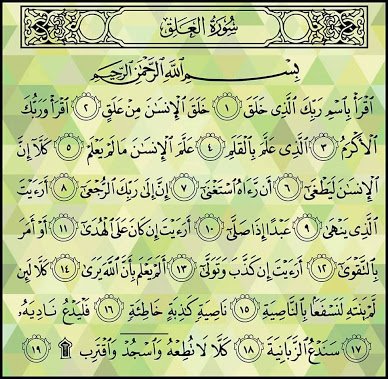 سُورَةُ العَلَقِ
بِسْمِ ٱللَّهِ ٱلرَّحْمَٰنِ ٱلرَّحِيمِ
ٱقْرَأْ بِٱسْمِ رَبِّكَ ٱلَّذِى خَلَقَ ١ خَلَقَ ٱلْإِنسَٰنَ مِنْ عَلَقٍ ٢ ٱقْرَأْ وَرَبُّكَ
ٱلْأَكْرَمُ ٣ ٱلَّذِى عَلَّمَ بِٱلْقَلَمِ ٤ عَلَّمَ ٱلْإِنسَٰنَ مَا لَمْ يَعْلَمْ ٥ كَلَّآ إِنَّ
ٱلْإِنسَٰنَ لَيَطْغَىٰٓ ٦ أَن رَّءَاهُ ٱسْتَغْنَىٰٓ ٧ إِنَّ إِلَىٰ رَبِّكَ ٱلرُّجْعَىٰٓ ٨ أَرَءَيْتَ
ٱلَّذِى يَنْهَىٰ ٩ عَبْدًا إِذَا صَلَّىٰٓ ١٠ أَرَءَيْتَ إِن كَانَ عَلَى ٱلْهُدَىٰٓ ١١ أَوْ أَمَرَ
بِٱلتَّقْوَىٰٓ ١٢ أَرَءَيْتَ إِن كَذَّبَ وَتَوَلَّىٰٓ ١٣ أَلَمْ يَعْلَم بِأَنَّ ٱللَّهَ يَرَىٰ ١٤ كَلَّا لَئِن
لَّمْ يَنتَهِ لَنَسْفَعًۢا بِٱلنَّاصِيَةِ ١٥ نَاصِيَةٍ كَٰذِبَةٍ خَاطِئَةٍ ١٦ فَلْيَدْعُ نَادِيَهُۥ
١٧ سَنَدْعُ ٱلزَّبَانِيَةَ ١٨ كَلَّا لَا تُطِعْهُ وَٱسْجُدْ وَٱقْتَرِب ۩ ١٩